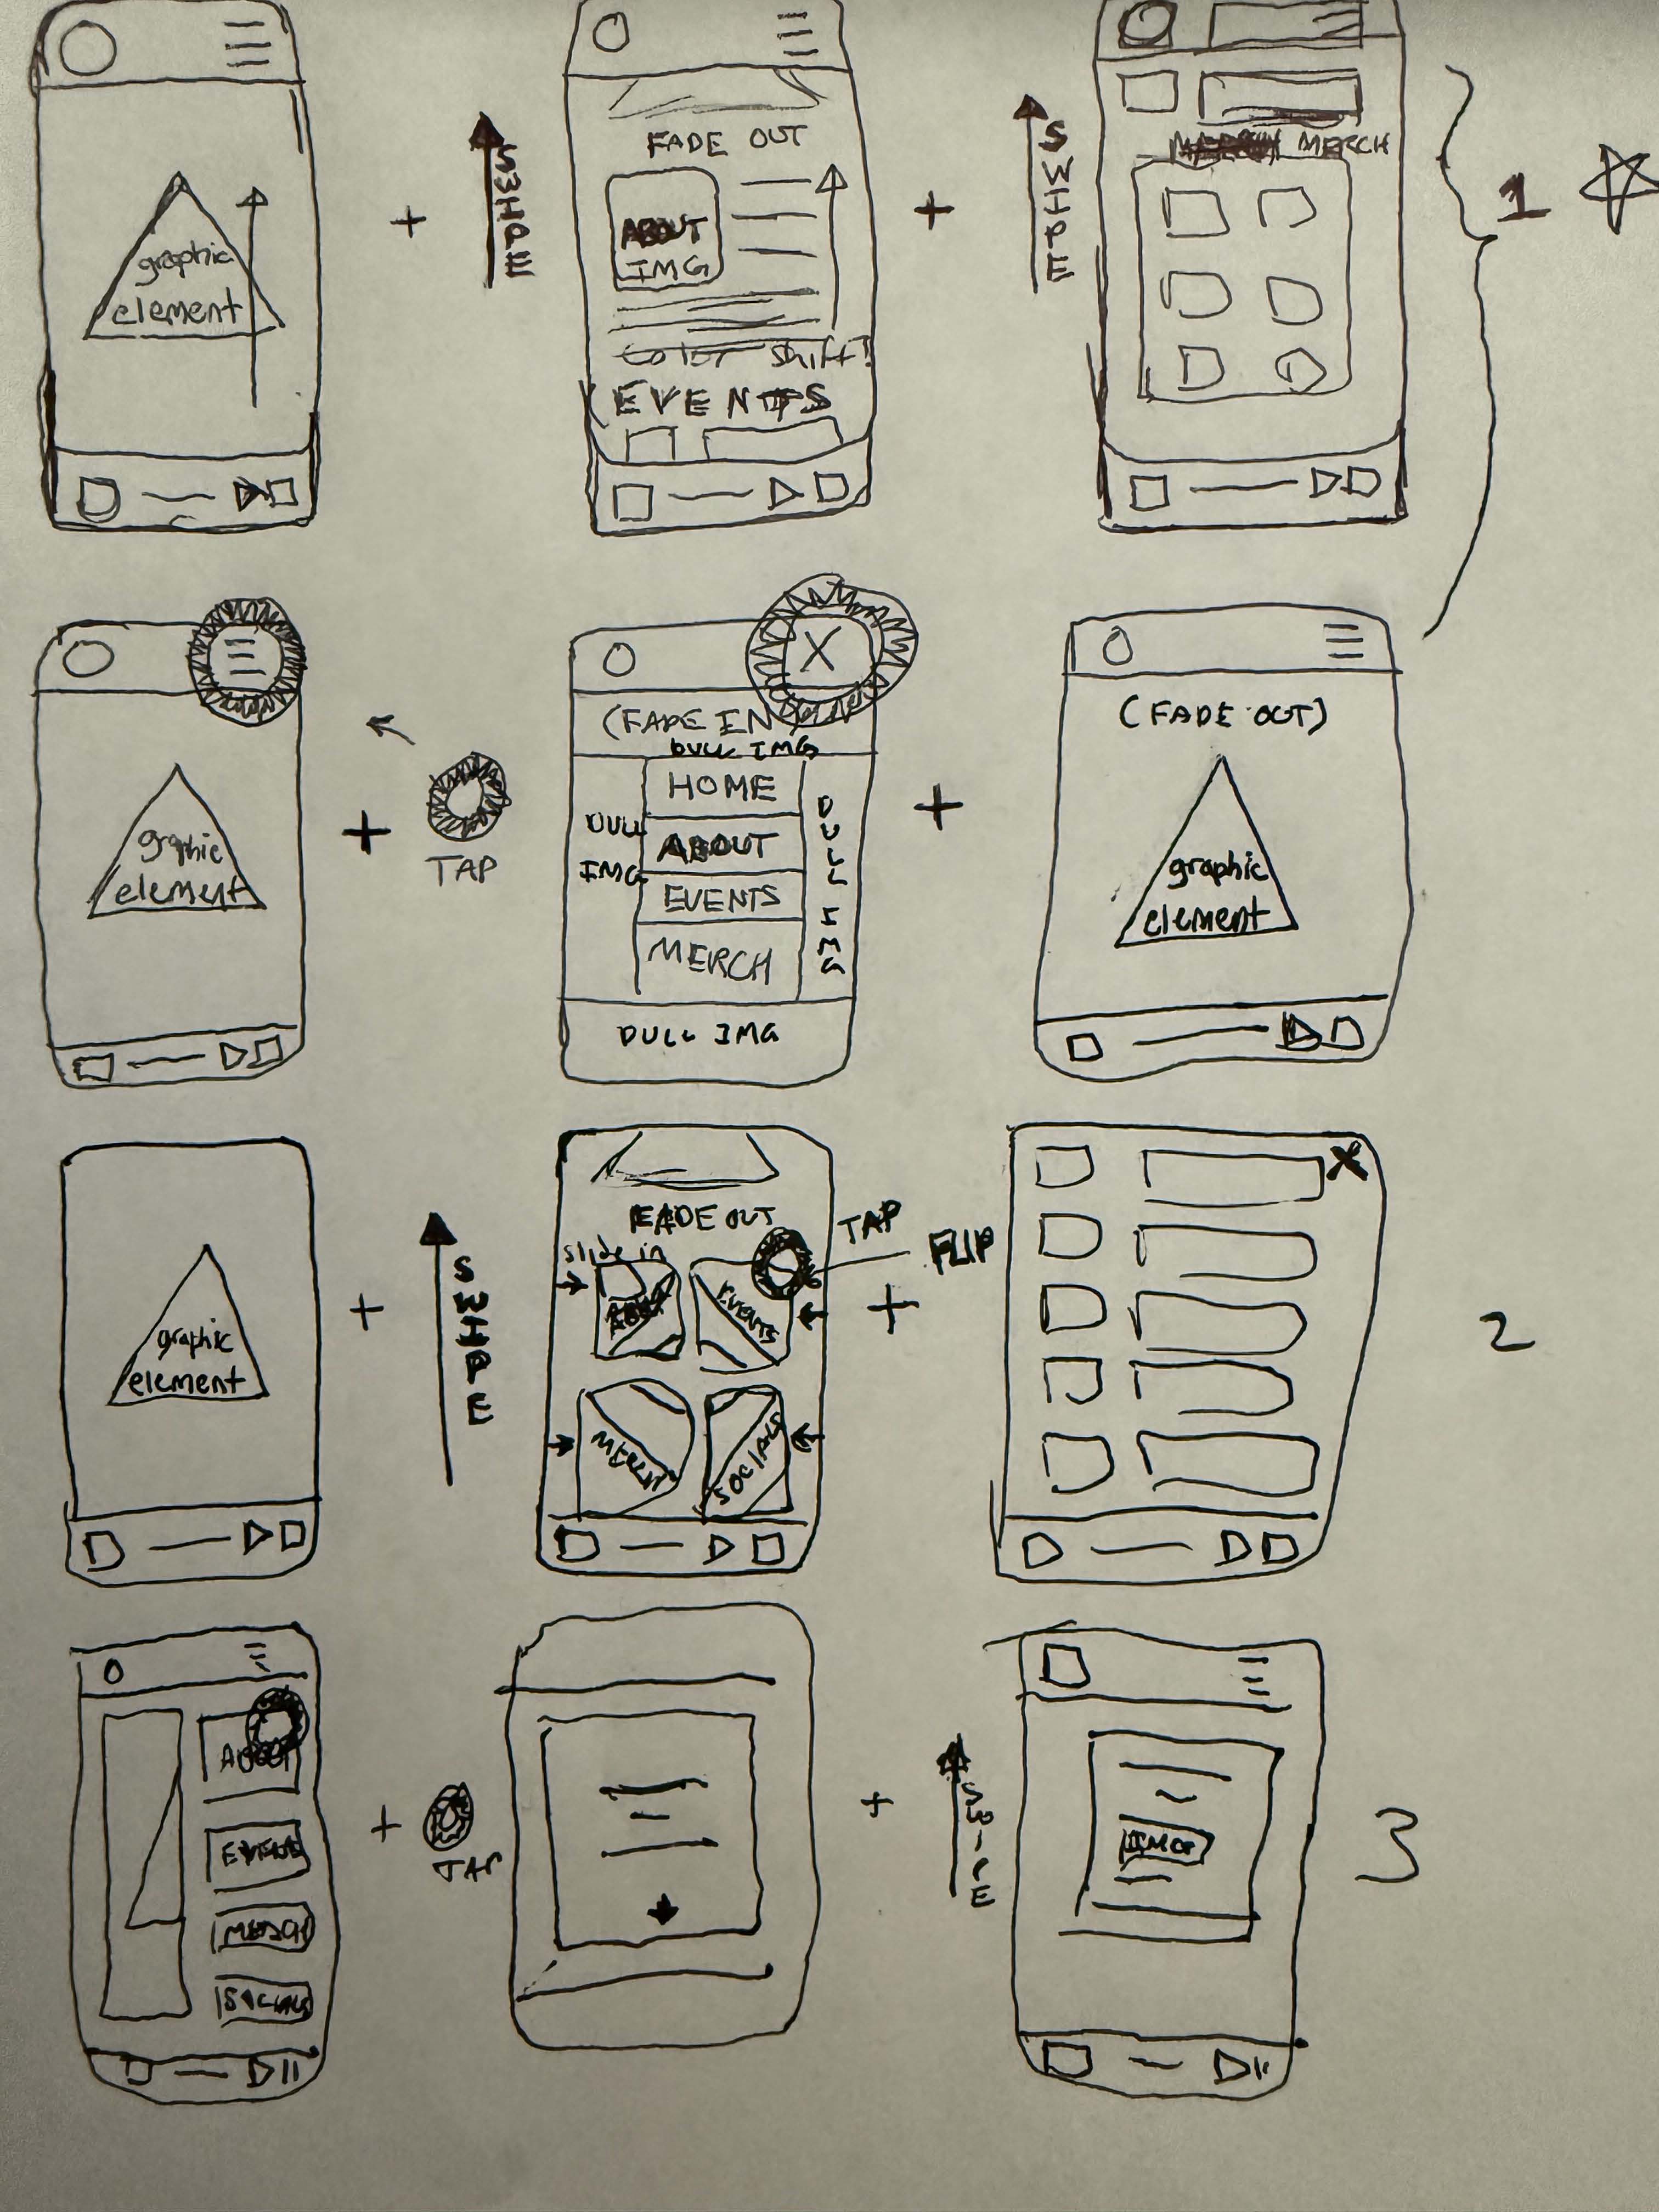 graphic
element
+
SWIPE
FADE OUT
ABOUT
IMG
color shift!
EVENTS
+
SWIPE
MERCH
1
graphic
element
+
TAP
X
(FADE IN)
DULL IMG
DULL
IMG
HOME
ABOUT
EVENTS
MERCH
DULL IMG
DULL IMG
+
(FADE OUT)
graphic
element
graphic
element
+
SWIPE
FADE OUT
slide in
ABOUT
EVENTS
MERCH
SOCIALS
TAP
FLIP
+
X
2
ABOUT
EVENTS
MERCH
SOCIALS
+
TAP
+
SWIPE
IMG
3